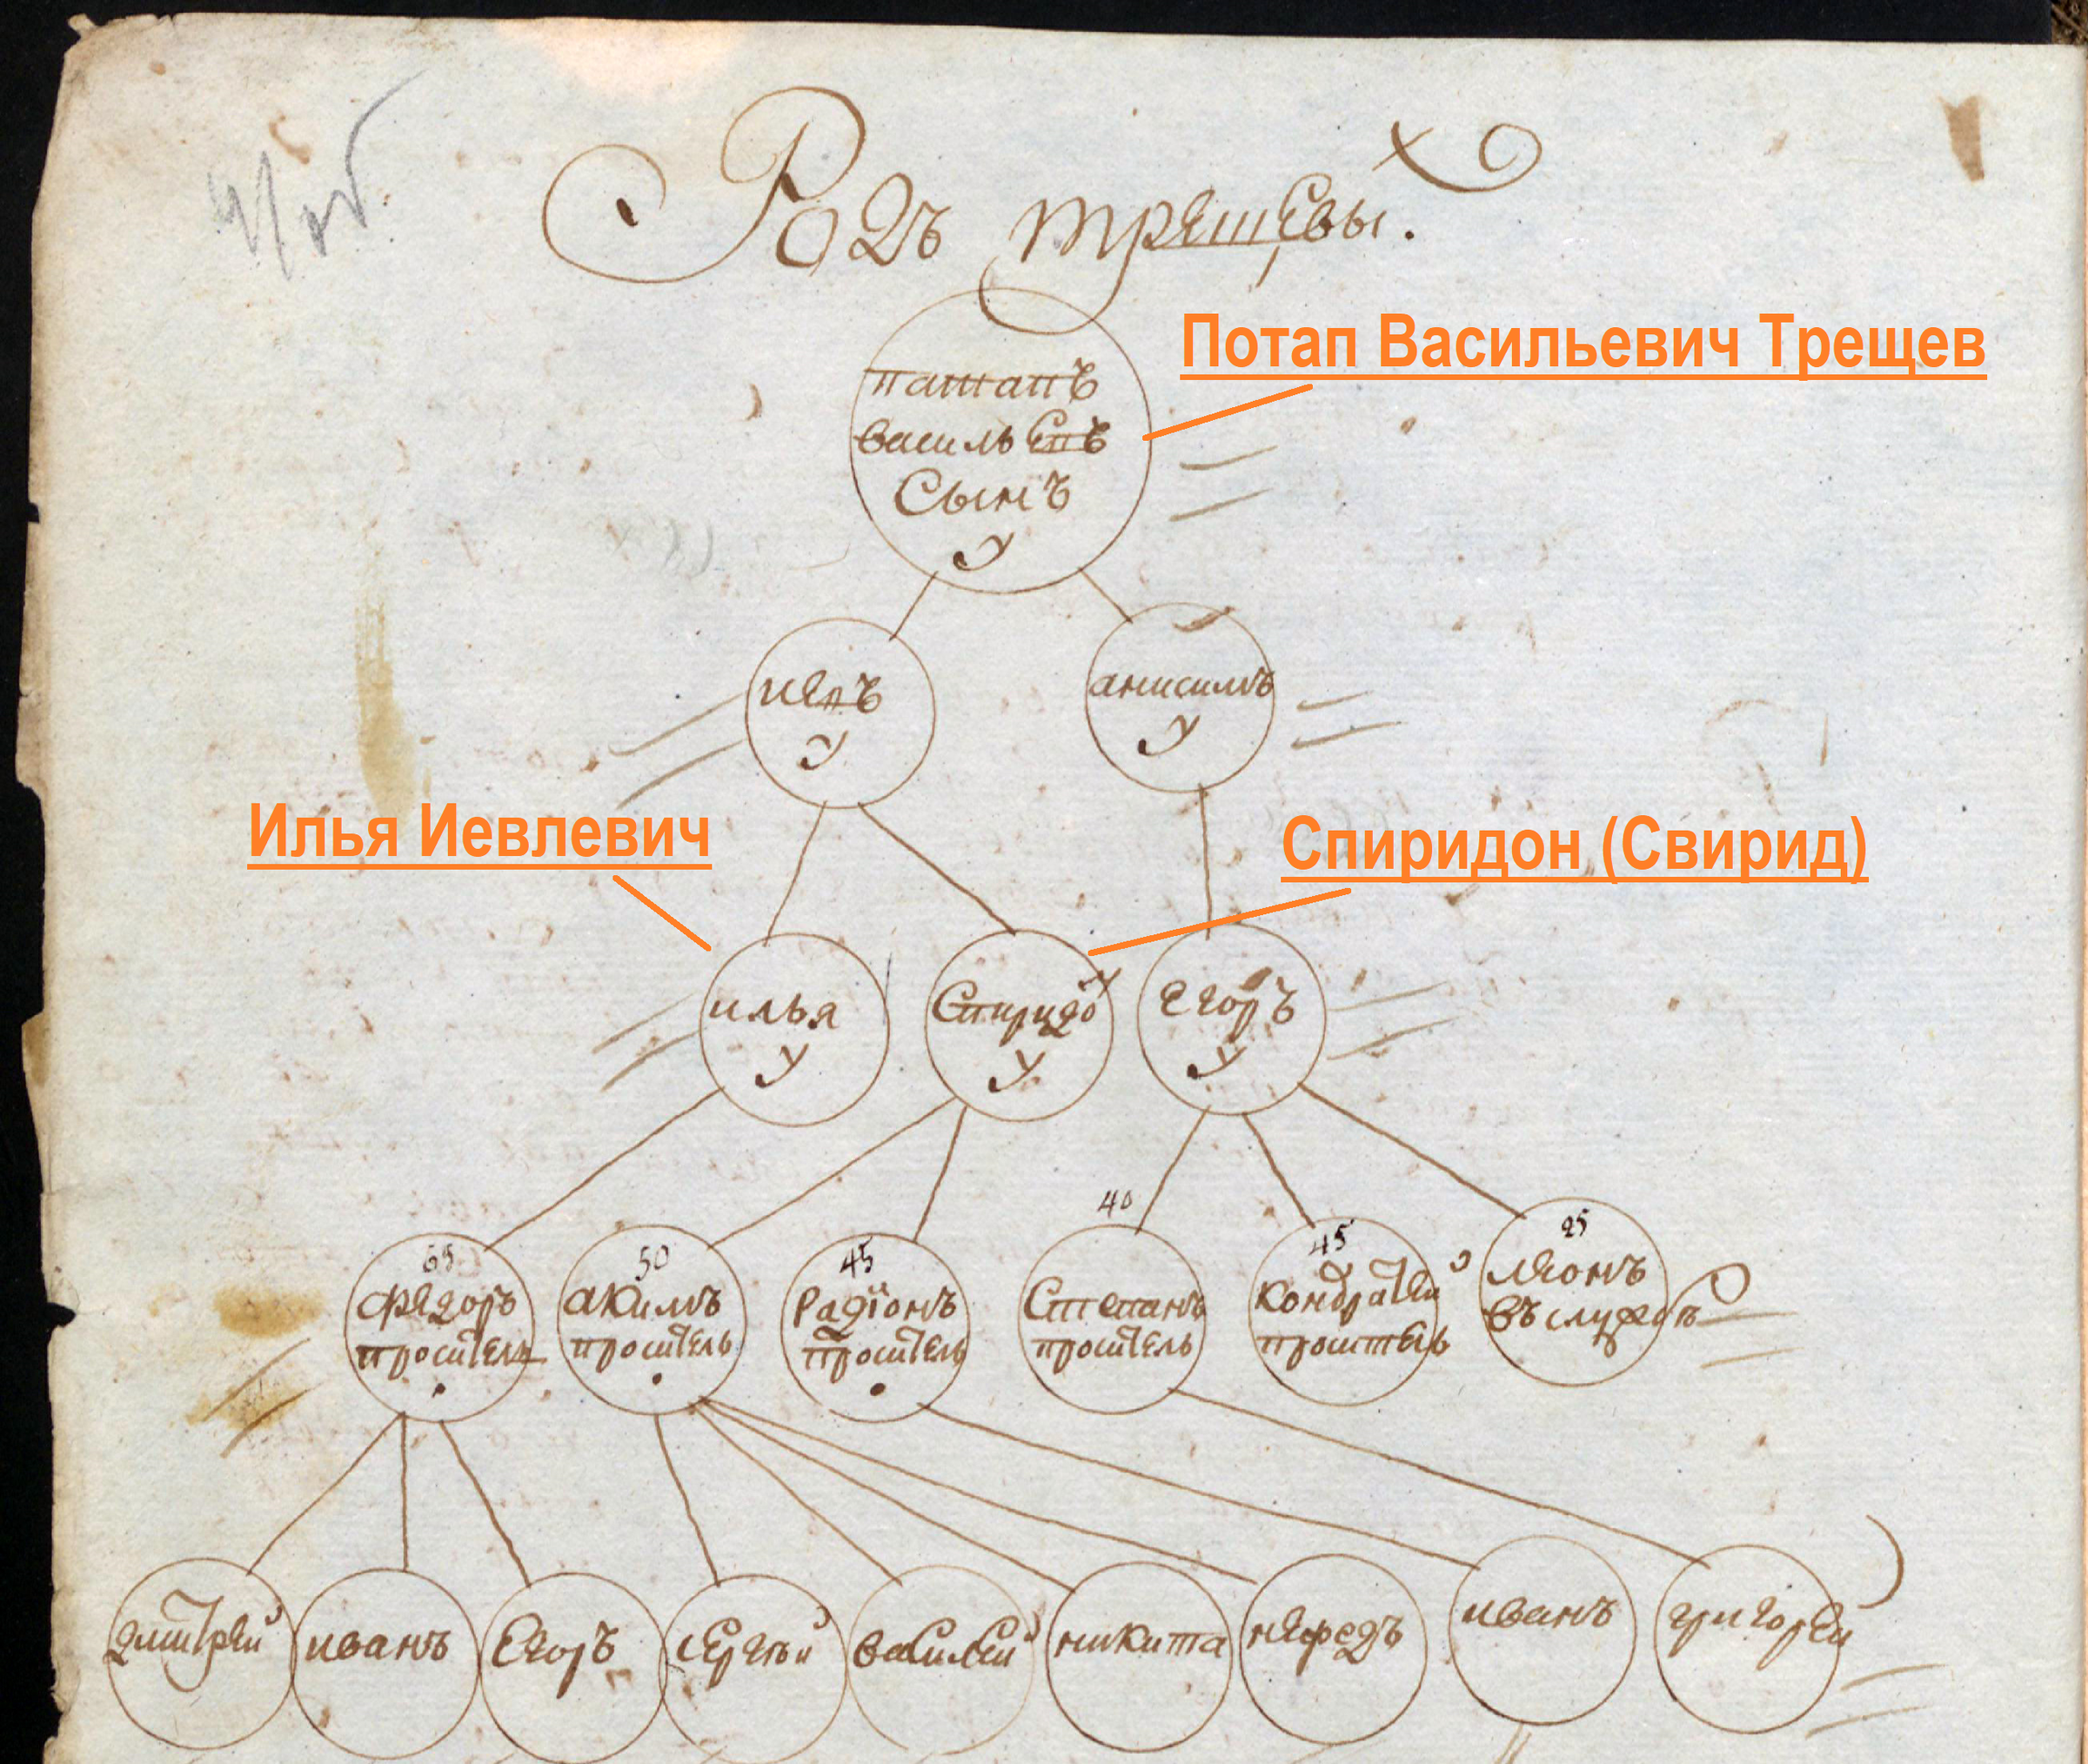 Родъ трещевы.
Потап Васильевич Трещев
патапъ
васильевъ
Сынъ
У
иевъ
У
анисимъ
У
Илья Иевлевич
Спиридон (Свирид)
илья
У
Спиридон
У
Егоръ
У
65
Федоръ
проситель
50
акимъ
проситель
45
Радіонъ
проситель
40
Степанъ
проситель
45
Кондратей
проситель
25
леонъ
въ службѣ
дмитрей
иванъ
Егоръ
сергѣй
василей
никита
нефедъ
иванъ
григорей